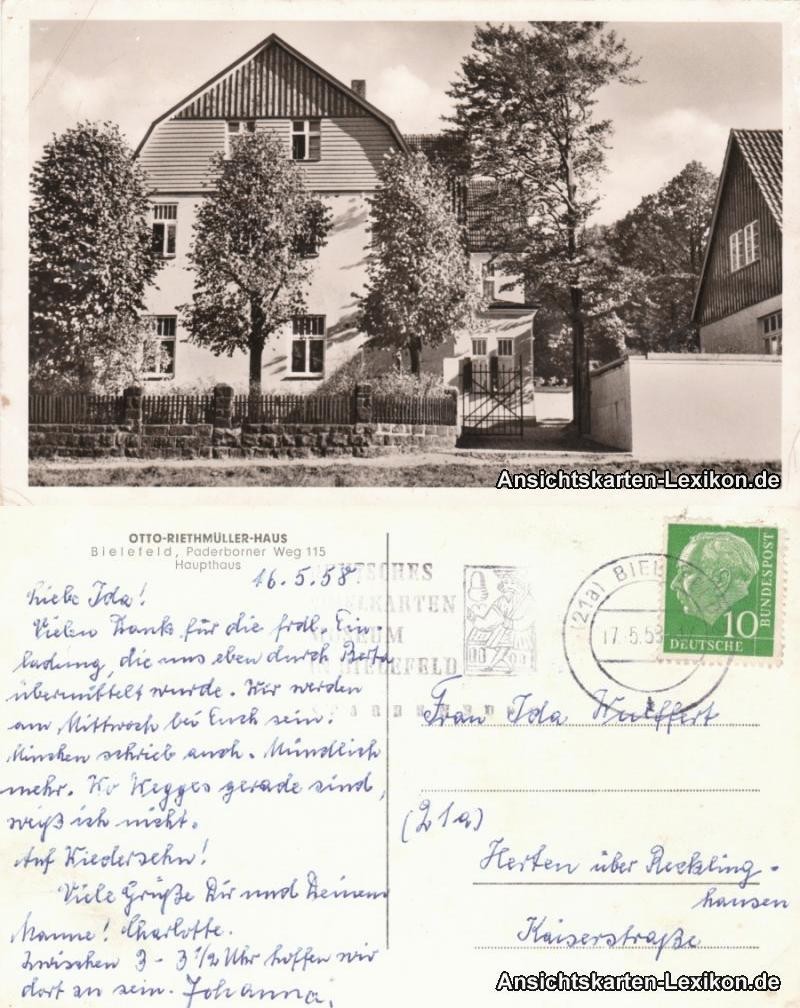 Ansichtskarten-Lexikon.de
OTTO-RIETHMÜLLER-HAUS
Bielefeld, Paderborner Weg 115
Haupthaus
16.5.58
Liebe Ida!
Vielen Dank für die frdl. Ein-
ladung, die uns eben durch Berta
übermittelt wurde. Wir werden
am Mittwoch bei Euch sein.
Minchen schrieb auch. Mündlich
mehr. Wo Wegges gerade sind,
weiß ich nicht.
Auf Wiedersehn!
Viele Grüße Dir und Deinem
Manne! Charlotte.
Zwischen 3 - 3 1/2 Uhr hoffen wir
dort zu sein. Johanna.
DEUTSCHES
SPIELKARTEN
MUSEUM
IN BIELEFELD
(21a) BIEL
17.5.58
10
DEUTSCHE
BUNDESPOST
Frau Ida Wulffert
(21a)
Herten über Reckling-
hausen
Kaiserstraße
Ansichtskarten-Lexikon.de